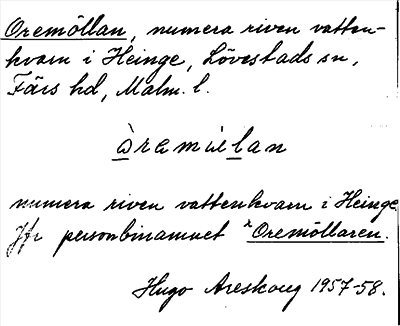 Oremöllan, numera riven vatten-
kvarn i Heinge, Lövestads sn,
Färs hd, Malm. l.
numera riven vattenkvarn i Heinge.
Jfr personbinamnet x Oremöllaren.
Hugo Areskoug 1957-58.